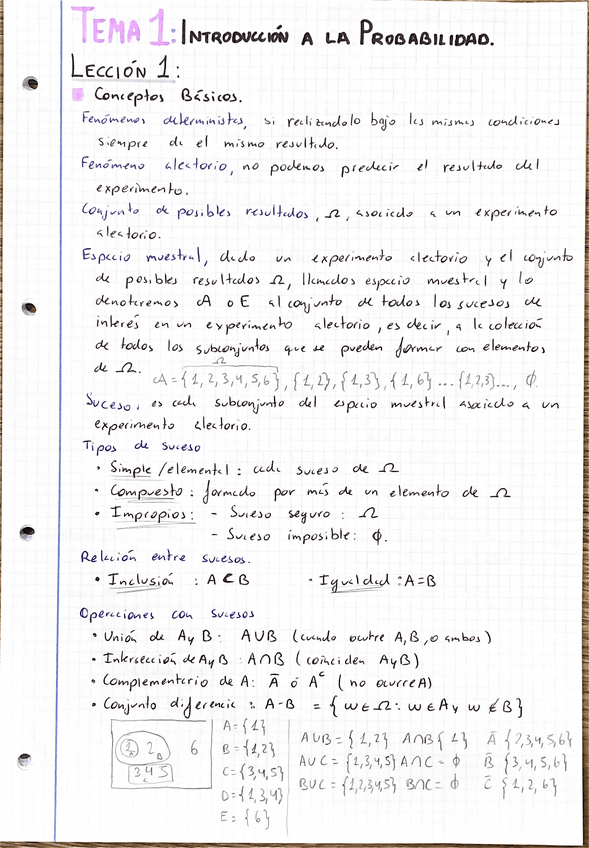 TEMA 1: INTRODUCCIÓN A LA PROBABILIDAD.
LECCIÓN 1:
Conceptos Básicos.
Fenómenos deterministas, si realizándolo bajo las mismas condiciones
siempre da el mismo resultado.
Fenómeno aleatorio, no podemos predecir el resultado del
experimento.
Conjunto de posibles resultados, Ω, asociado a un experimento
aleatorio.
Espacio muestral, dado un experimento aleatorio y el conjunto
de posibles resultados Ω, llamados espacio muestral y lo
denotaremos A o E al conjunto de todos los sucesos de
interés en un experimento aleatorio, es decir, a la colección
de todos los subconjuntos que se pueden formar con elementos
Ω
de Ω. A = {1,2,3,4,5,6}, {1,2}, {1,3}, {1,6} ... {1,2,3}..., ϕ.
Suceso, es cada subconjunto del espacio muestral asociado a un
experimento aleatorio.
Tipos de suceso
• Simple /elemental: cada suceso de Ω
• Compuesto: formado por más de un elemento de Ω
• Impropios: - Suceso seguro: Ω
- Suceso imposible: ϕ.
Relación entre sucesos.
• Inclusión : A ⊂ B · Igualdad : A=B
Operaciones con sucesos
• Unión de A y B: A∪B (cuando ocurre A, B, o ambos)
• Intersección de A y B: A∩B (coinciden A y B)
• Complementario de A: Ā ó Aᶜ (no ocurre A)
• Conjunto diferencia: A-B = {w∈Ω: w∈A y w∉B}
1 A 2 B 6
3 4 5 C
A={1}
B={1,2}
C={3,4,5}
D={1,3,4}
E={6}
A∪B={1,2} A∩B{1} Ā {2,3,4,5,6}
A∪C={1,3,4,5} A∩C=ϕ B̄ {3,4,5,6}
B∪C={1,2,3,4,5} B∩C=ϕ C̄ {1,2,6}